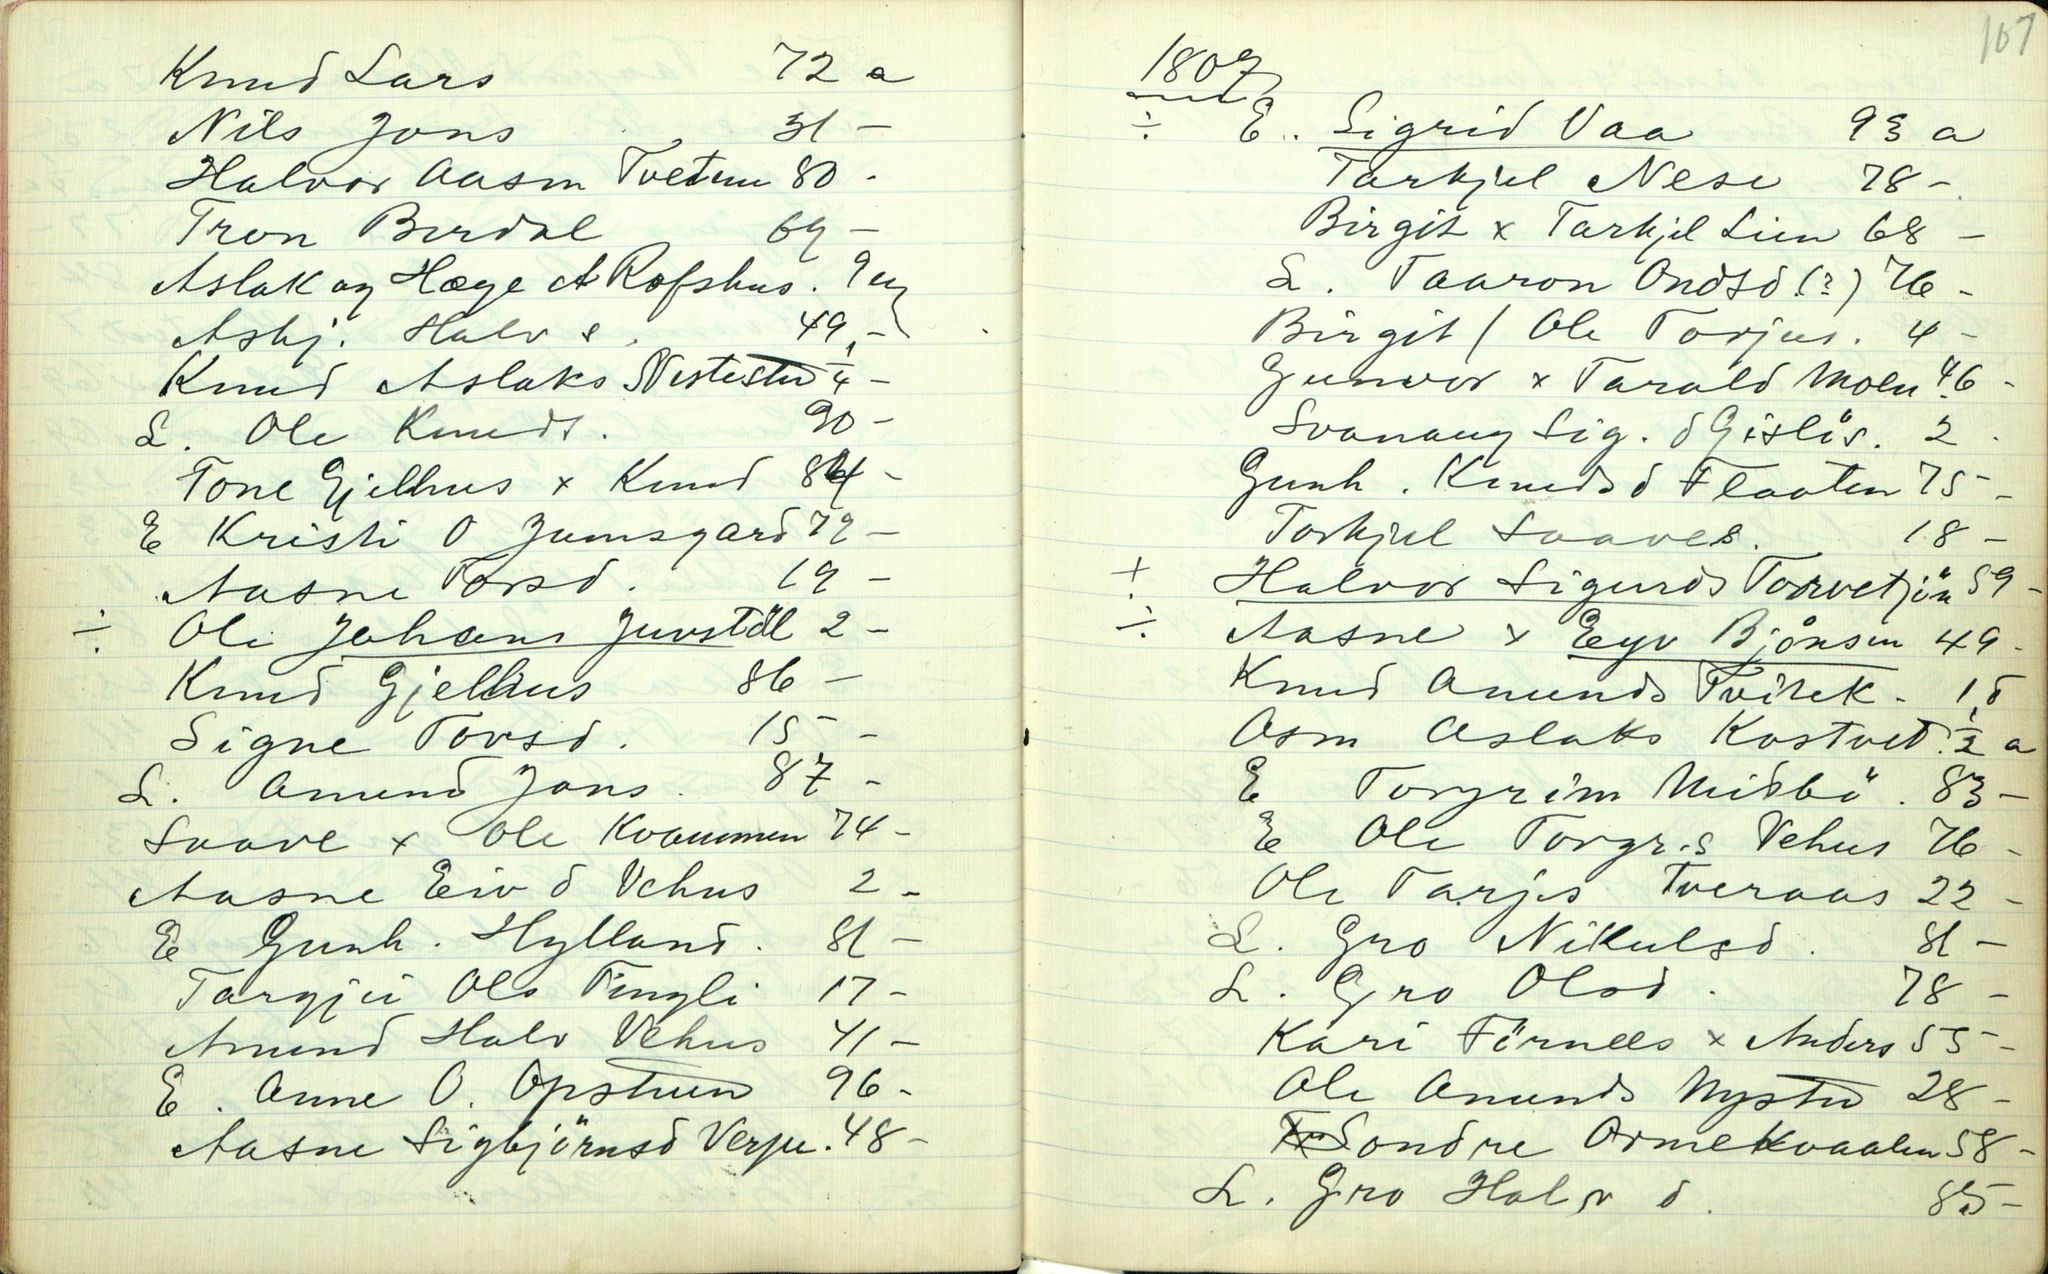 Knud Lars 72 a
Nils Jons 31 –
Halvor Aasm Tvetun 80 -
Tron Berdal 69 –
Aslak og Hæge A Rofshus. 9
Asbj. Halv s. 49 –
Knud Aslaks Nistestu 1/4 –
L. Ole Knuds. 90 –
Tone Gjelhus x Knud 84 -
E Kristi O Jumsgard 79 –
Aasne Torsd. 19 –
÷ Ole Johans Juvstöl 2 –
Knud Gjelhus 86 –
Signe Torsd. 15 –
L. Amund Jons. 87 -
Saave x Ole Kvammen 74 –
Aasne Eiv d Vehus 2 -
E Gunh. Hylland. 81 –
Targjei Ols Tingli 17 –
Amund Halv Vehus 41 –
E. Anne O. Opstuen 96 -
Aasne Sigbjörnsd Verpe. 48 –
107
1807
÷ E. Sigrid Vaa 93 a
Tarkjel Nese 78 –
Birgit x Tarkjel Lien 68 –
L. Taaron Ondsd (?) 76 -
Birgit / Ole Torjus. 4 –
Gunvor x Tarald Moen 46 -
Svanaug Sig. d Gislöv. 2 -
Gunh. Knudsd Flaaten 75 –
Torkjel Saaves. 18 –
÷ Halvor Sigurds Torvetjön 59 -
÷ Aasne x Eyv Bjönsen 49 -
Knud Amunds Tvitek - 1,5
Asm Aslaks Kostvet. 1/2 a
E Torgrim Midbö. 83 –
E Ole Torgr.s Vehus 76 -
Ole Tarjs Tveraas 22 -
L. Gro Nikulsd. 81 –
L. Gro Olsd. 78 –
Kari Förnees x Anders 55 –
Ole Amunds Nystu 28 –
Sondre Ormekvaalen 58 -
L. Gro Halv d. 85 –